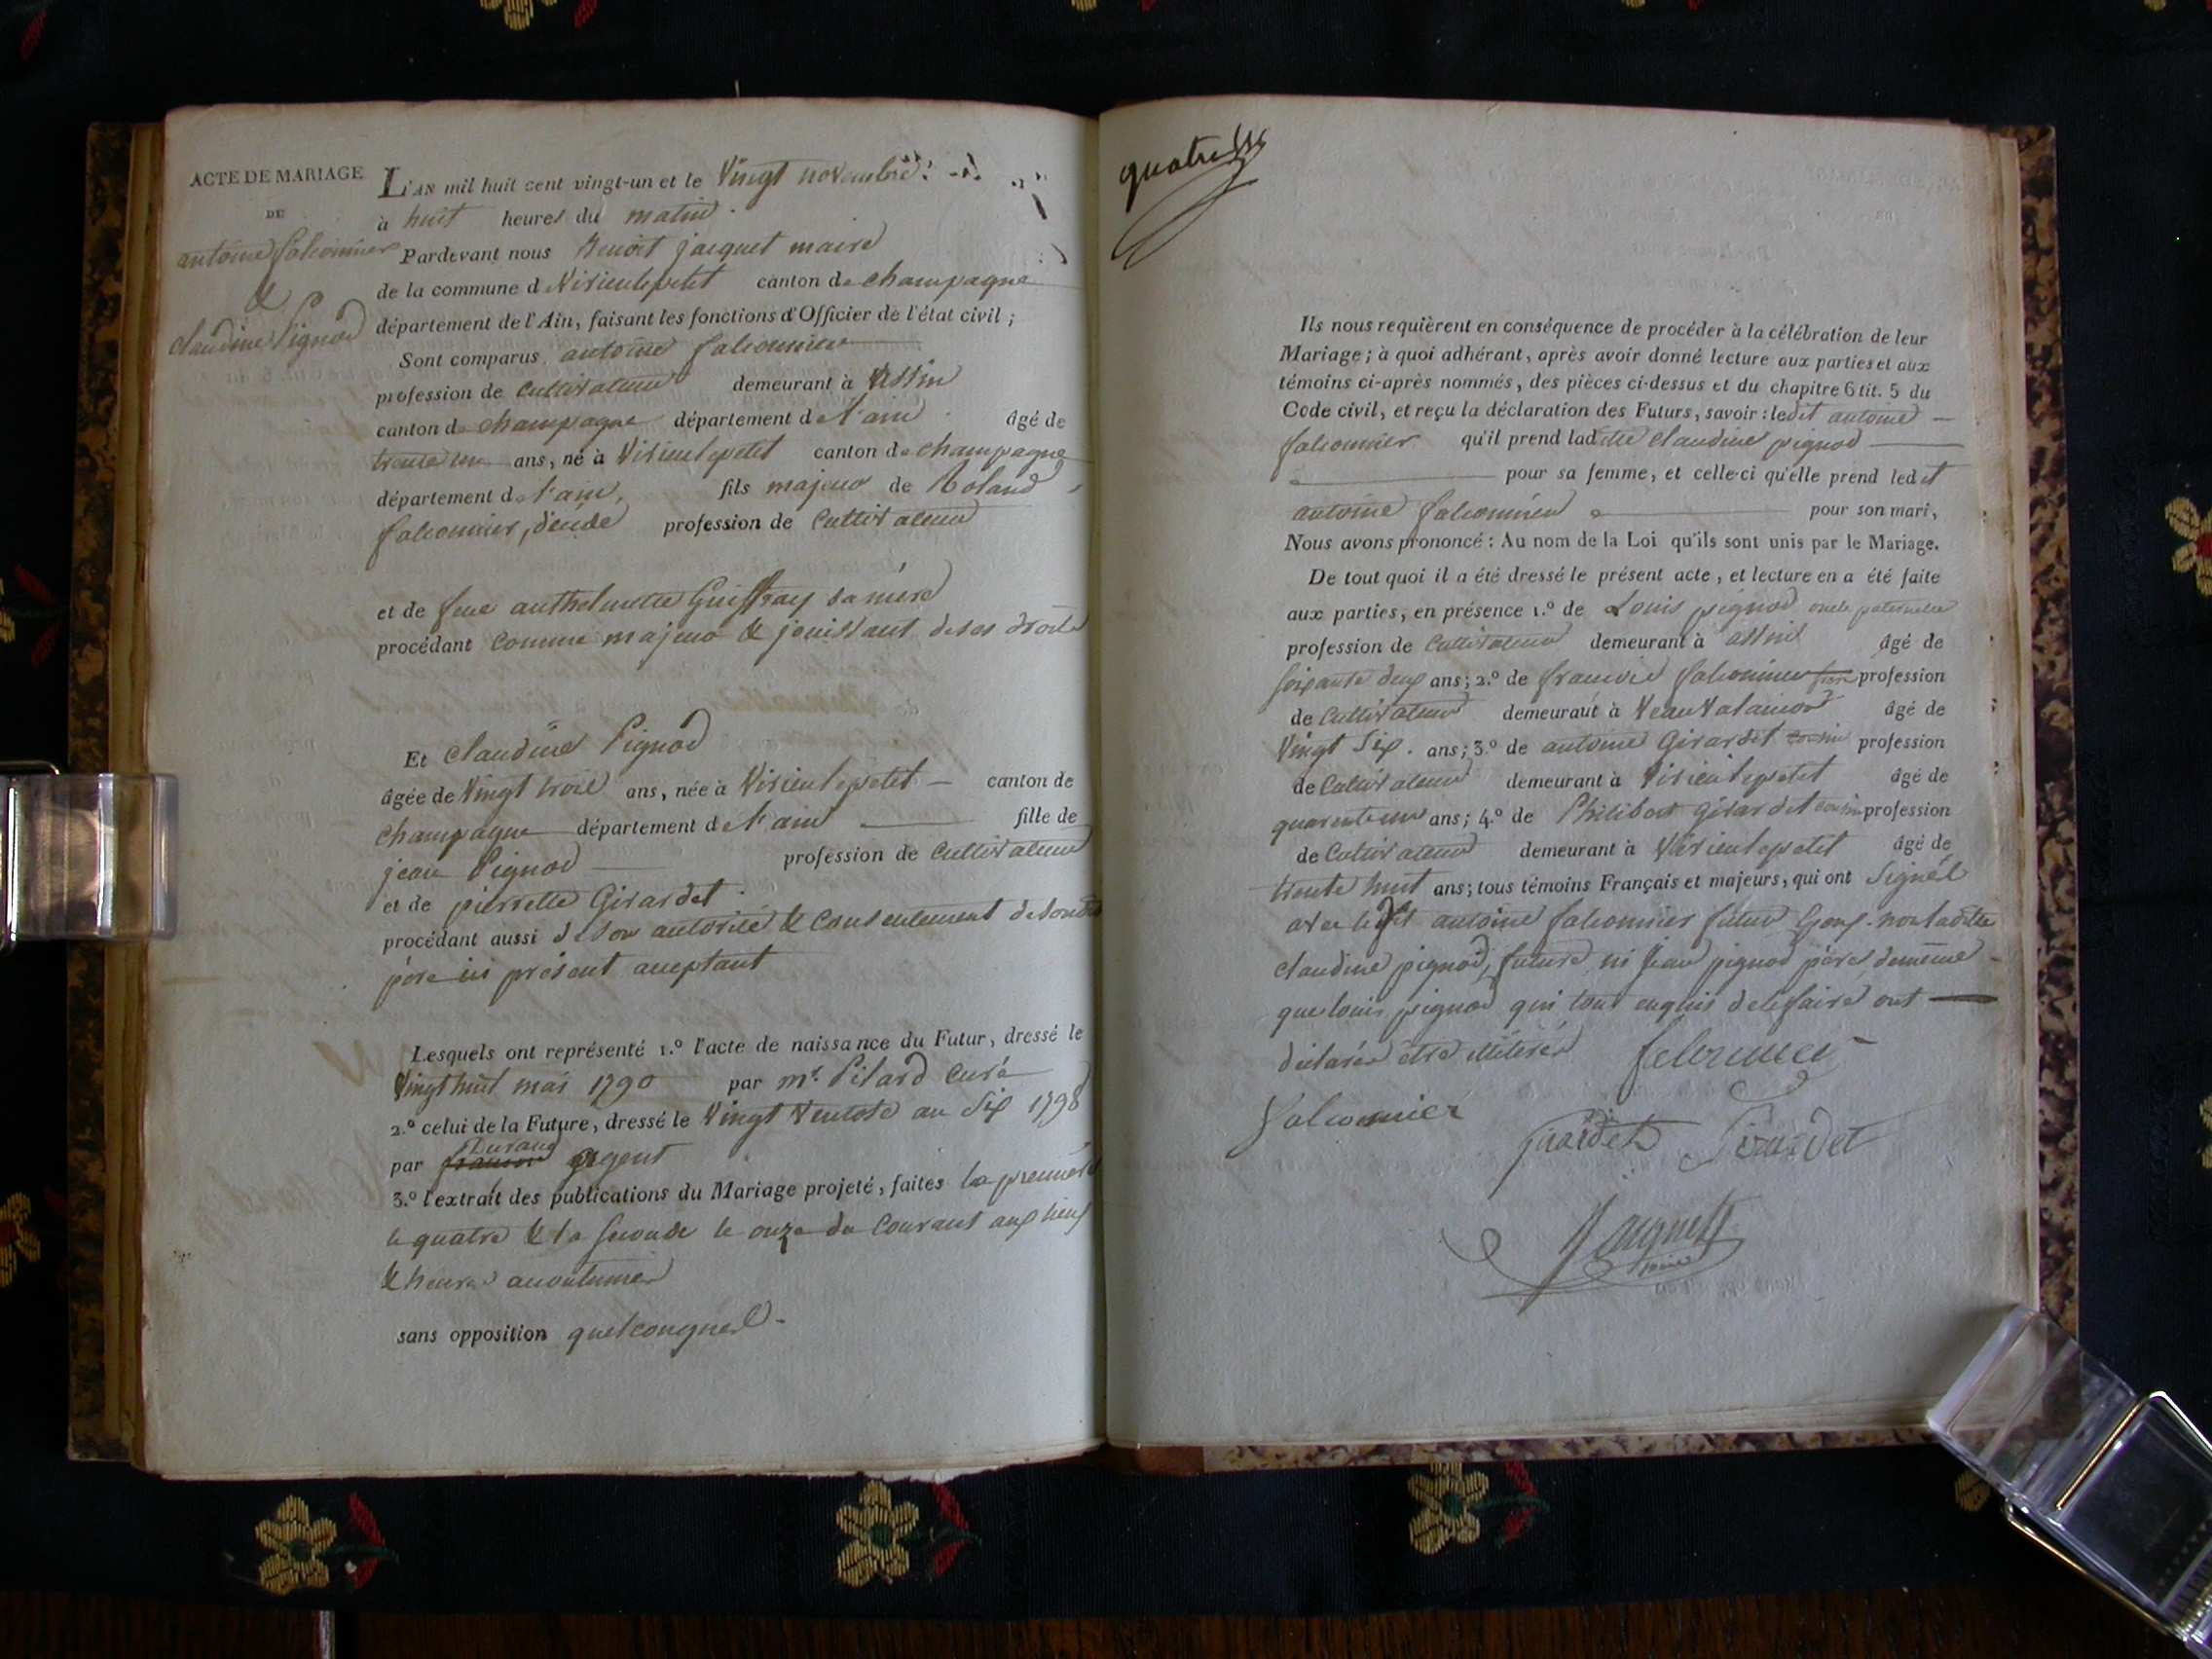 ACTE DE MARIAGE
DE
antoine falconnier
&
claudine Pignod
L'AN mil huit cent vingt-un et le Vingt novembre
à huit heures du matin
Pardevant nous Benoit jacquet maire
de la commune d Virieulepetit canton de champagne
département de l'Ain, faisant les fonctions d'Officier de l'état civil ;
Sont comparus antoine falconnier
profession de Cultivateur demeurant à assin
canton de champagne département de l'ain âgé de
trente un ans, né à Virieulepetit canton de champagne
département de l'ain, fils majeur de Roland
falconnier, décédé profession de Cultivateur
et de feue anthelmette Guiffray sa mère
procédant comme majeur & jouissant de ses droits
Et claudine Pignod
âgée de Vingt trois ans, née à Virieulepetit canton de
champagne département de l'ain fille de
jean Pignod profession de Cultivateur
et de pierrette Girardet
procédant aussi de son autorité & consentement de sondit
père ici présent acceptant
Lesquels ont représenté 1.º l'acte de naissance du Futur, dressé le
Vingt huit mai 1790 par mr. Pitard curé
2.º celui de la Future, dressé le Vingt Ventose an Six 1798
par Durand agent
3.º l'extrait des publications du Mariage projeté, faites la première
le quatre & la seconde le onze du Courant aux lieux
& heures accoutumés
sans opposition quelconque.
quatre
Ils nous requièrent en conséquence de procéder à la célébration de leur
Mariage ; à quoi adhérant, après avoir donné lecture aux parties et aux
témoins ci-après nommés, des pièces ci-dessus et du chapitre 6 tit. 5 du
Code civil, et reçu la déclaration des Futurs, savoir : ledit antoine
falconnier qu'il prend ladite claudine pignod
pour sa femme, et celle-ci qu'elle prend ledit
antoine falconnier pour son mari,
Nous avons prononcé : Au nom de la Loi qu'ils sont unis par le Mariage.
De tout quoi il a été dressé le présent acte, et lecture en a été faite
aux parties, en présence 1.º de Louis pignod oncle paternelle
profession de Cultivateur demeurant à assin âgé de
soixante deux ans ; 2.º de francois falconnier frere profession
de Cultivateur demeurant à Vauvalaincon âgé de
Vingt Six . ans ; 3.º de antoine Girardet cousin profession
de Cultivateur demeurant à Virieulepetit âgé de
quarente un ans ; 4.º de Philibert Girardet cousin profession
de Cultivateur demeurant à Virieulepetit âgé de
trente huit ans ; tous témoins Français et majeurs, qui ont Signés
avec ledit antoine falconnier futur Epoux non ladite
claudine pignod, future, ni jean pignod père de meme
que louis pignod qui tous enquis de le faire ont
déclarés etre illitérés falconnier
falconnier
Girardet Girardet
Jacquet
maire